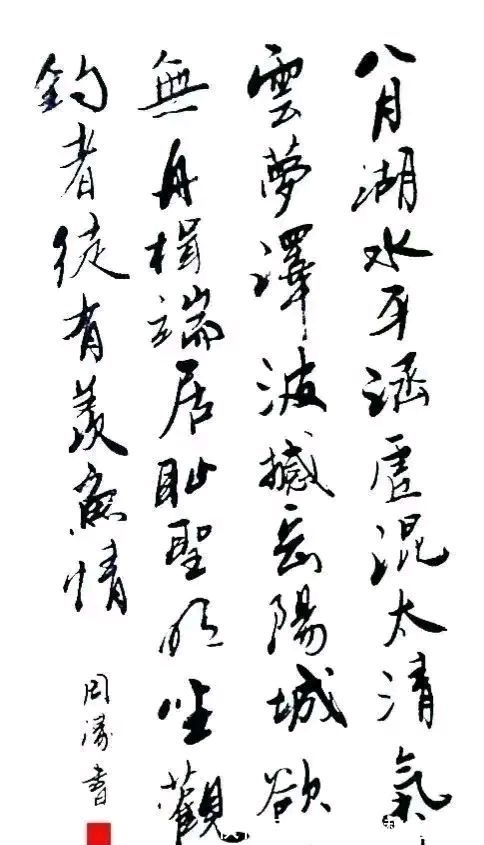 八月湖水平涵虚混太清氣
雲夢澤波撼岳陽城欲
無舟楫端居耻聖明坐觀
釣者徒有羨魚情
周濤書